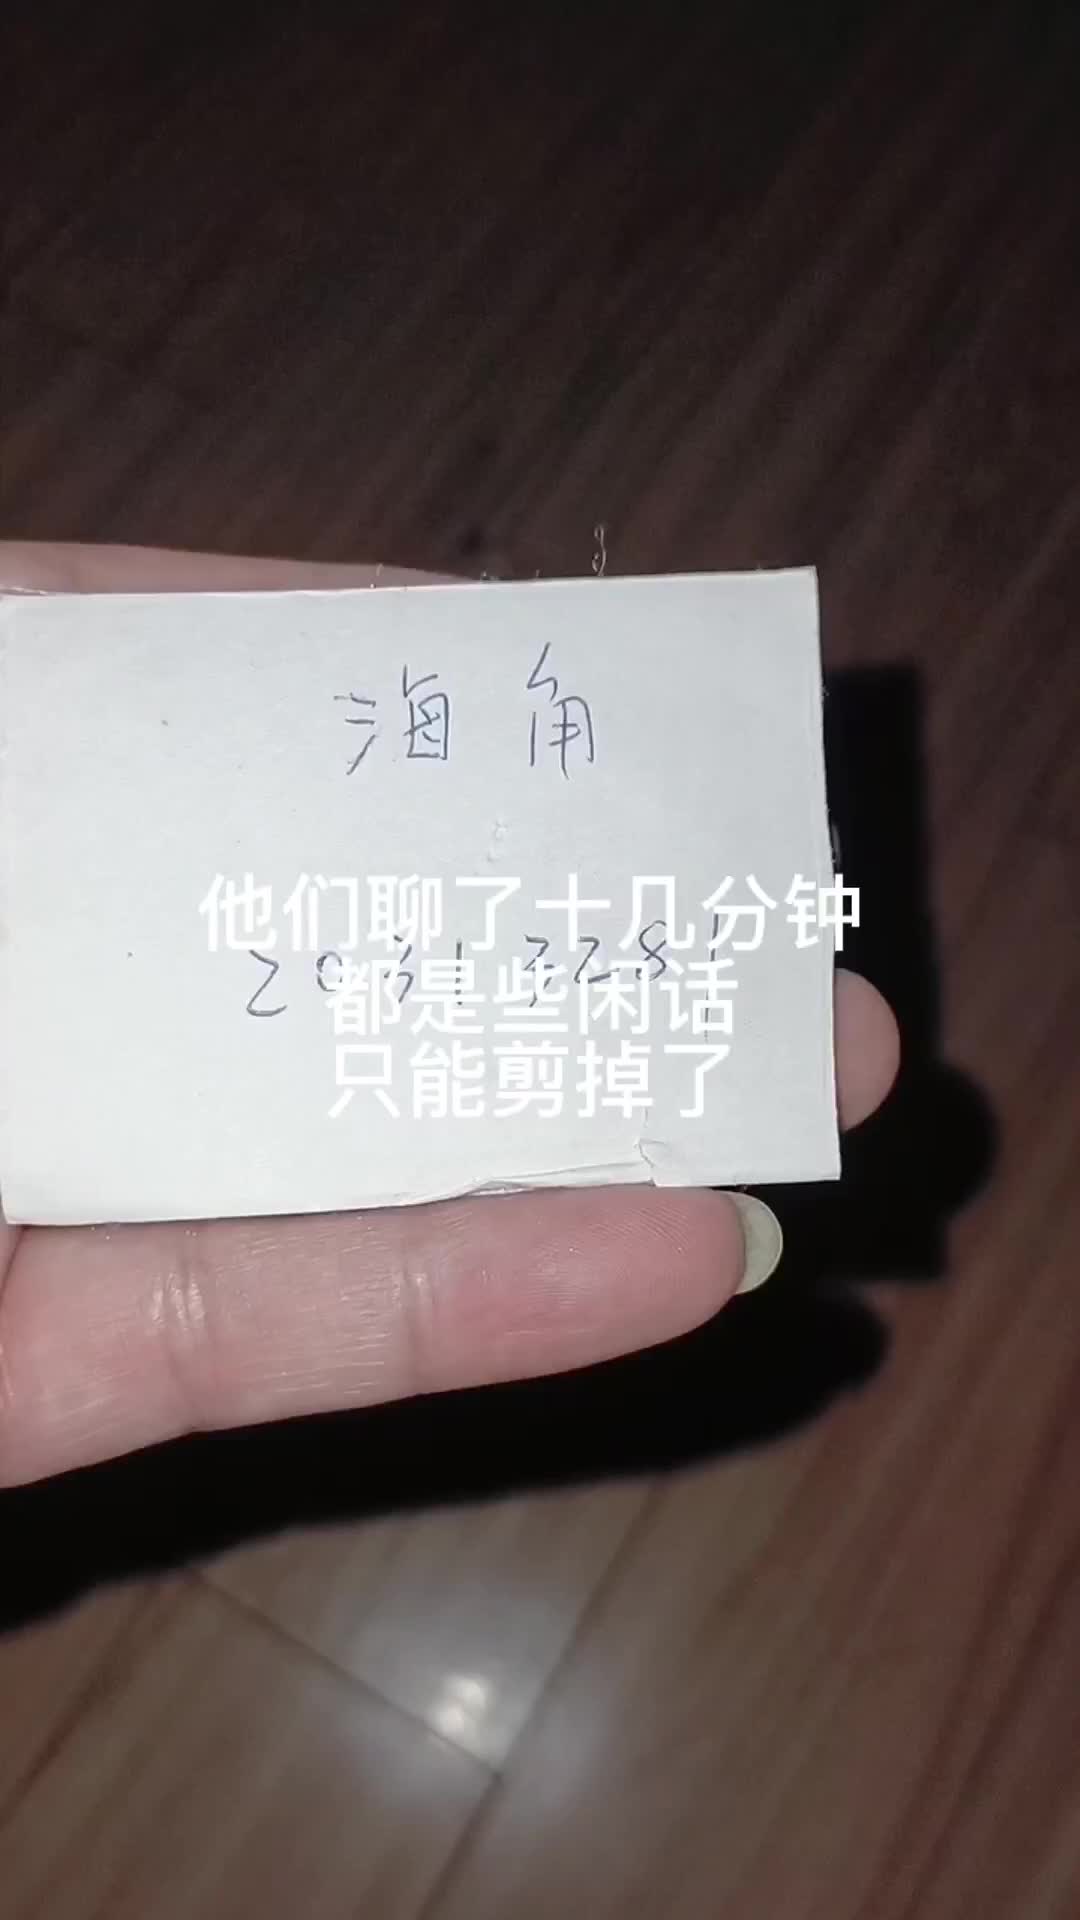 海角
他们聊了十几分钟
20313281
都是些闲话
只能剪掉了